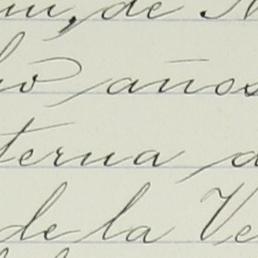 , de
años
terna
de la Ve